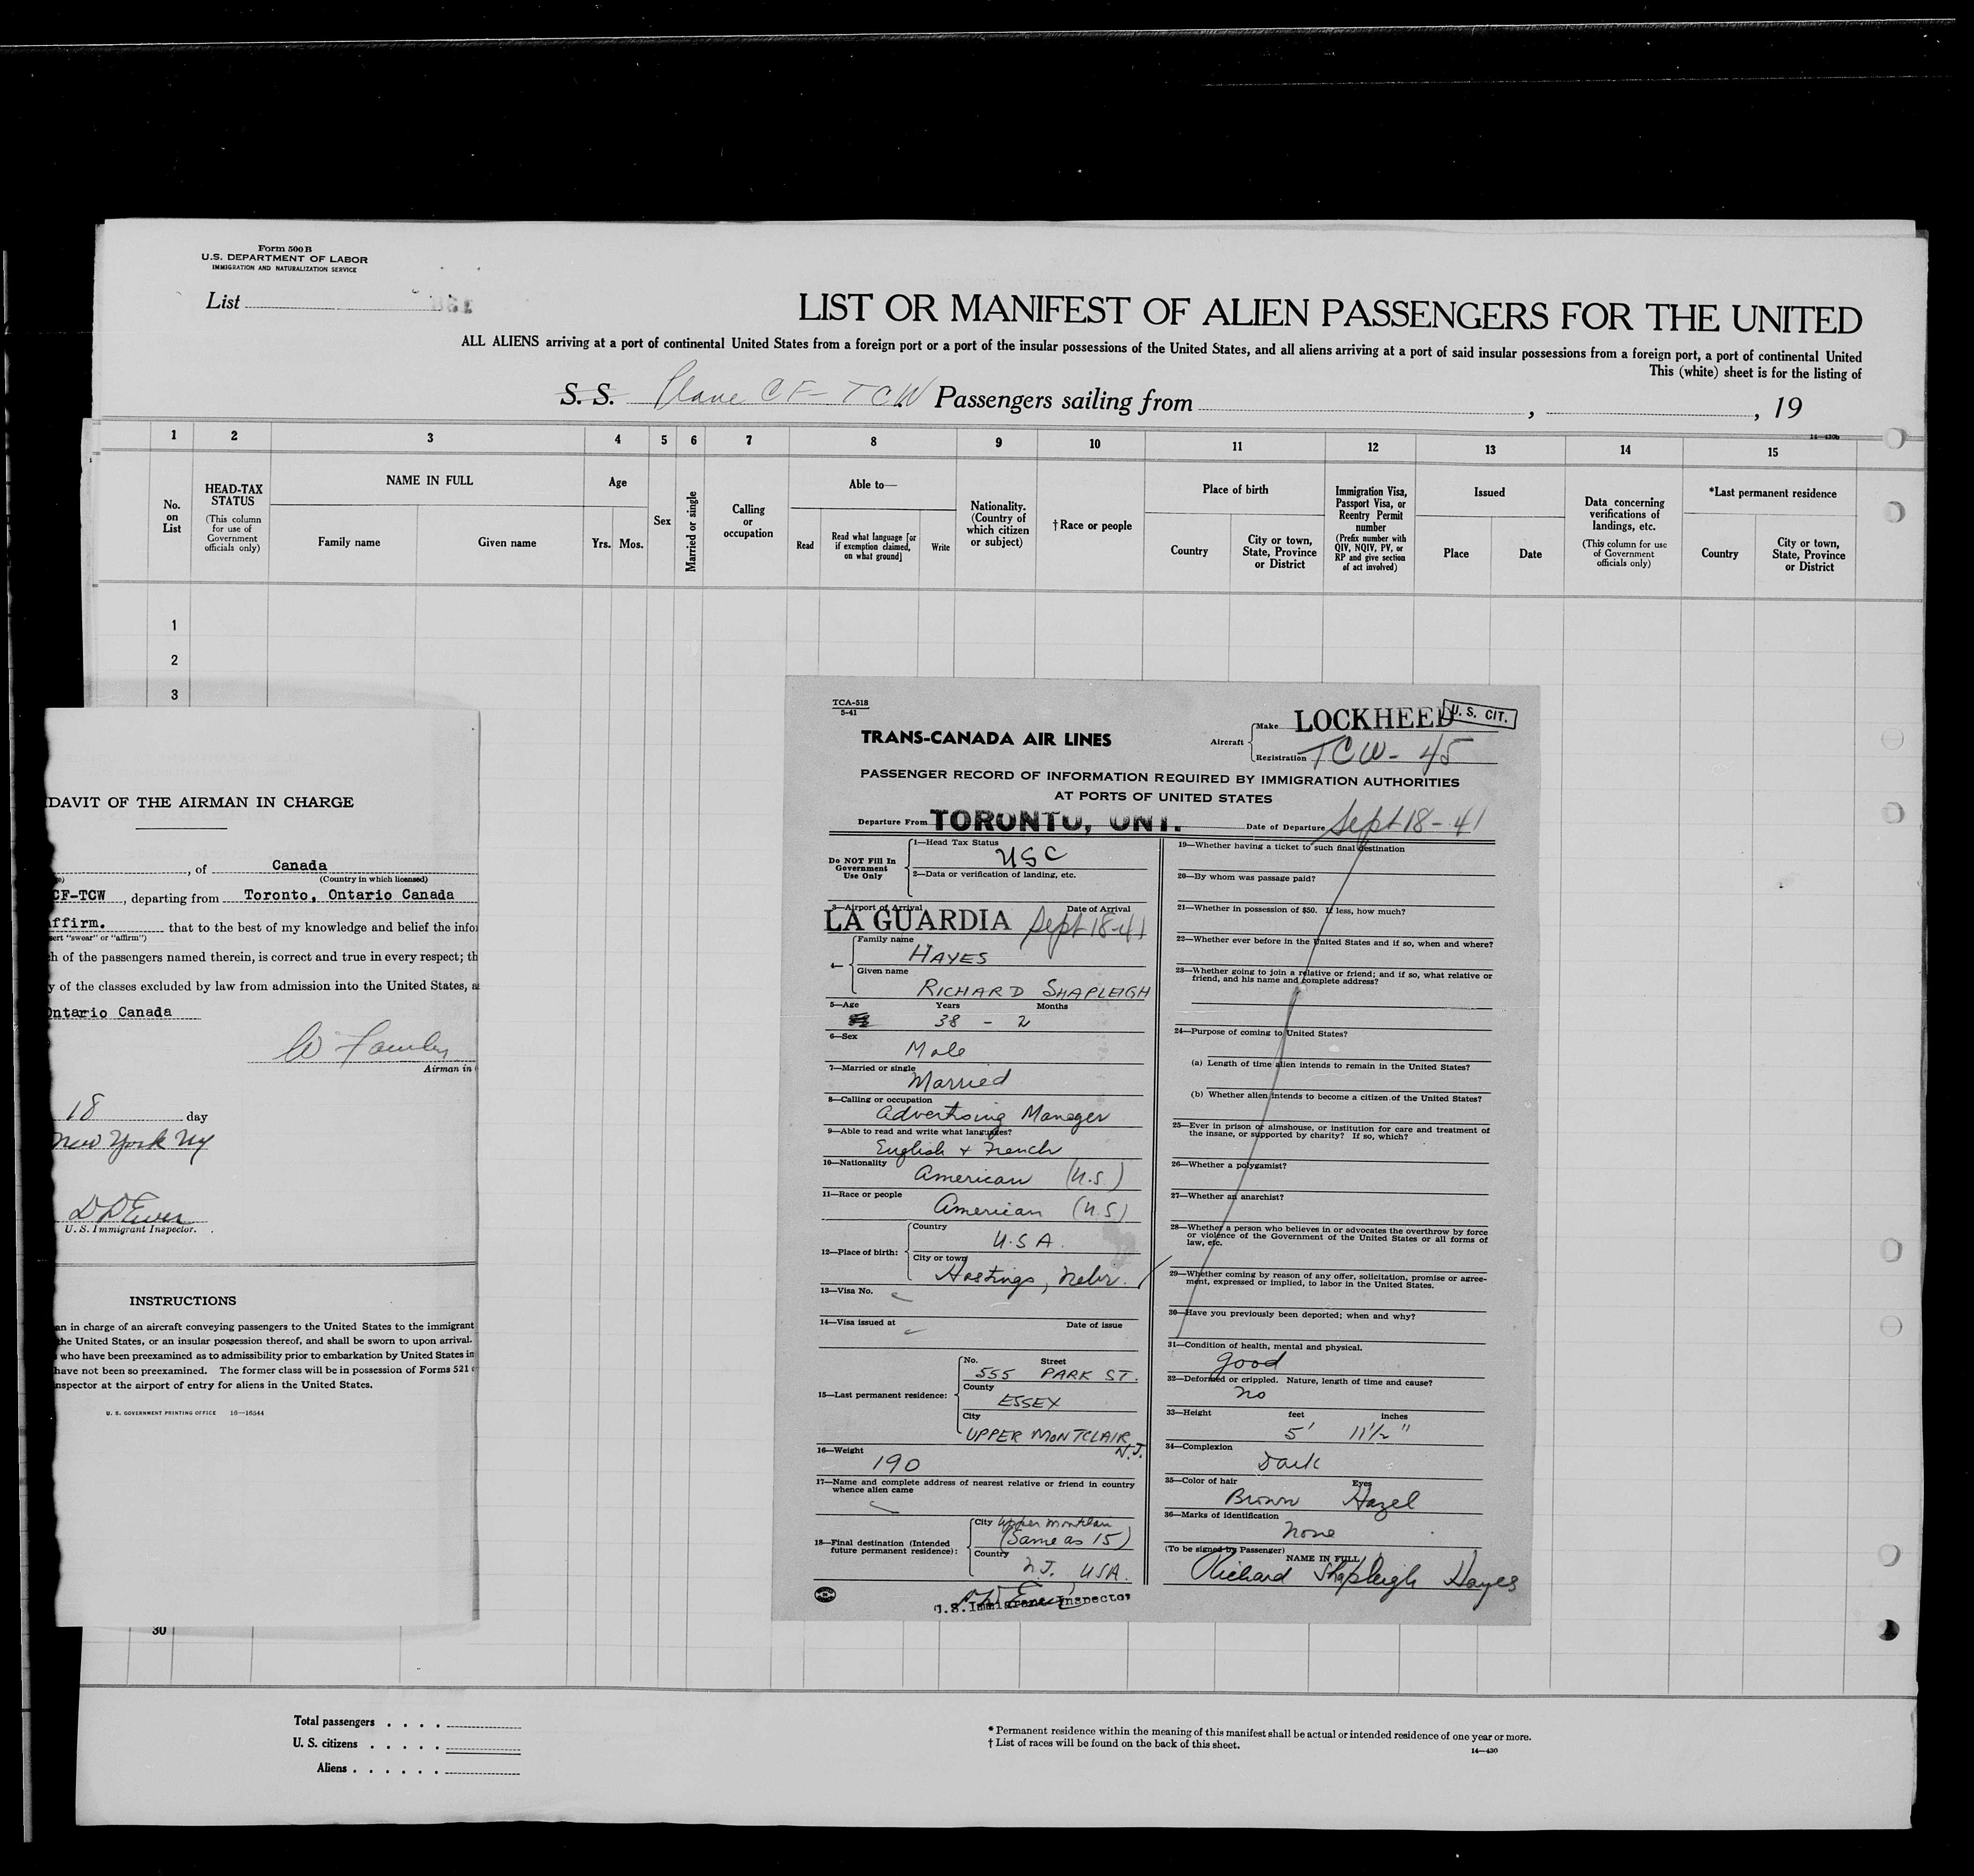 Form 500 B
U.S. DEPARTMENT OF LABOR
IMMIGRATION AND NATURALIZATION SERVICE
List
LIST OR MANIFEST OF ALIEN PASSENGERS FOR THE UNITED
ALL ALIENS arriving at a port of continental United States from a foreign port or a port of the insular possessions of the United States, and all aliens arriving at a port of said insular possessions from a foreign port, a port of continental United
This (white) sheet is for the listing of
S. S. Plane CF-TCW Passengers sailing from , , 19
14—430b
1 2 3 4 5 6 7 8 9 10 11 12 13 14 15
No. on List
HEAD-TAX STATUS
(This column for use of Government officials only)
NAME IN FULL
Family name Given name
Age
Yrs. Mos.
Sex
Married or single
Calling or occupation
Able to—
Read
Read what language [or if exemption claimed, on what ground]
Write
Nationality. (Country of which citizen or subject)
†Race or people
Place of birth
Country
City or town, State, Province or District
Immigration Visa, Passport Visa, or Reentry Permit number
(Prefix number with QIV, NQIV, PV, or RP and give section of act involved)
Issued
Place Date
Data concerning verifications of landings, etc.
(This column for use of Government officials only)
*Last permanent residence
Country
City or town, State, Province or District
1
2
3
30
DAVIT OF THE AIRMAN IN CHARGE
, of Canada
(Country in which licensed)
CF-TCW , departing from Toronto, Ontario Canada
ffirm. that to the best of my knowledge and belief the infor
sert "swear" or "affirm")
h of the passengers named therein, is correct and true in every respect; th
y of the classes excluded by law from admission into the United States, a
Ontario Canada
Airman in
18 day
New York NY
U. S. Immigrant Inspector.
INSTRUCTIONS
an in charge of an aircraft conveying passengers to the United States to the immigrant
the United States, or an insular possession thereof, and shall be sworn to upon arrival.
who have been preexamined as to admissibility prior to embarkation by United States im
have not been so preexamined. The former class will be in possession of Forms 521
nspector at the airport of entry for aliens in the United States.
U. S. GOVERNMENT PRINTING OFFICE 16—16544
TCA-518
5-41
TRANS-CANADA AIR LINES
Aircraft
Make LOCKHEED
U. S. CIT.
Registration TCW-45
PASSENGER RECORD OF INFORMATION REQUIRED BY IMMIGRATION AUTHORITIES
AT PORTS OF UNITED STATES
Departure From TORONTO, ONT. Date of Departure Sept 18-41
Do NOT Fill In
Government
Use Only
1—Head Tax Status
USC
2—Data or verification of landing, etc.
3—Airport of Arrival Date of Arrival
LA GUARDIA Sept 18-41
4—
Family name
HAYES
Given name
RICHARD SHAPLEIGH
5—Age Years Months
38 - 2
6—Sex
Male
7—Married or single
Married
8—Calling or occupation
Advertising Manager
9—Able to read and write what languges?
English + French
10—Nationality
American (U.S.)
11—Race or people
American (U.S)
12—Place of birth:
Country
U.S A.
City or town
Hastings, Nebr.
13—Visa No.
14—Visa issued at Date of issue
15—Last permanent residence:
No. Street
555 PARK ST.
County
ESSEX
City
UPPER MONTCLAIR
N.J.
16—Weight
190
17—Name and complete address of nearest relative or friend in country
whence alien came
18—Final destination (Intended
future permanent residence):
City Upper Montclair
(Same as 15)
Country
N.J. USA.
U.S. Immigrant Inspector
19—Whether having a ticket to such final destination
20—By whom was passage paid?
21—Whether in possession of $50. If less, how much?
22—Whether ever before in the United States and if so, when and where?
23—Whether going to join a relative or friend; and if so, what relative or
friend, and his name and complete address?
24—Purpose of coming to United States?
(a) Length of time alien intends to remain in the United States?
(b) Whether alien intends to become a citizen of the United States?
25—Ever in prison or almshouse, or institution for care and treatment of
the insane, or supported by charity? If so, which?
26—Whether a polygamist?
27—Whether an anarchist?
28—Whether a person who believes in or advocates the overthrow by force
or violence of the Government of the United States or all forms of
law, etc.
29—Whether coming by reason of any offer, solicitation, promise or agree-
ment, expressed or implied, to labor in the United States.
30—Have you previously been deported; when and why?
31—Condition of health, mental and physical.
good
32—Deformed or crippled. Nature, length of time and cause?
no
33—Height feet inches
5' 11 1/2"
34—Complexion
Dark
35—Color of hair Eyes
Brown Hazel
36—Marks of identification
none
(To be signed by Passenger)
NAME IN FULL
Richard Shapleigh Hayes
Total passengers . . . .
U. S. citizens . . . . .
Aliens . . . . . .
* Permanent residence within the meaning of this manifest shall be actual or intended residence of one year or more.
† List of races will be found on the back of this sheet.
14—430